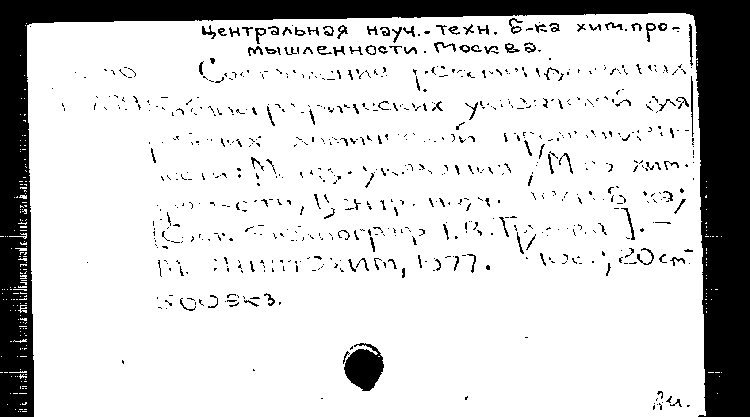 Центральная науч.-техн. б-ка хим. про-
мышленности. Москва.
Составление рекомендательных
библиографических указателей для
рабочих химической промышлен-
ности: М указания / М-во хим.
пром-сти, Центр. науч. техн. б-ка;
[Сост. библиограф В.
М. НИИТЭХИМ, 1977. с.; 20 см
500 экз.